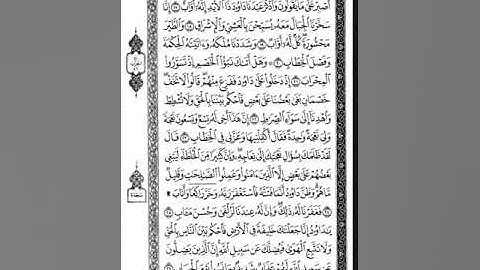 ٱصْبِرْ عَلَىٰ مَا يَقُولُونَ وَٱذْكُرْ عَبْدَنَا دَاوُۥدَ ذَا ٱلْأَيْدِ إِنَّهُۥٓ أَوَّابٌ ١٧ إِنَّا
سَخَّرْنَا ٱلْجِبَالَ مَعَهُۥ يُسَبِّحْنَ بِٱلْعَشِىِّ وَٱلْإِشْرَاقِ ١٨ وَٱلطَّيْرَ
مَحْشُورَةً كُلٌّ لَّهُۥٓ أَوَّابٌ ١٩ وَشَدَدْنَا مُلْكَهُۥ وَءَاتَيْنَٰهُ ٱلْحِكْمَةَ
وَفَصْلَ ٱلْخِطَابِ ٢٠ وَهَلْ أَتَىٰكَ نَبَؤُا۟ ٱلْخَصْمِ إِذْ تَسَوَّرُوا۟
ٱلْمِحْرَابَ ٢١ إِذْ دَخَلُوا۟ عَلَىٰ دَاوُۥدَ فَفَزِعَ مِنْهُمْ قَالُوا۟ لَا تَخَفْ
خَصْمَانِ بَغَىٰ بَعْضُنَا عَلَىٰ بَعْضٍ فَٱحْكُم بَيْنَنَا بِٱلْحَقِّ وَلَا تُشْطِطْ
وَٱهْدِنَآ إِلَىٰ سَوَآءِ ٱلصِّرَٰطِ ٢٢ إِنَّ هَٰذَآ أَخِى لَهُۥ تِسْعٌ وَتِسْعُونَ نَعْجَةً
وَلِىَ نَعْجَةٌ وَٰحِدَةٌ فَقَالَ أَكْفِلْنِيهَا وَعَزَّنِى فِى ٱلْخِطَابِ ٢٣ قَالَ
لَقَدْ ظَلَمَكَ بِسُؤَالِ نَعْجَتِكَ إِلَىٰ نِعَاجِهِۦ وَإِنَّ كَثِيرًا مِّنَ ٱلْخُلَطَآءِ لَيَبْغِى
بَعْضُهُمْ عَلَىٰ بَعْضٍ إِلَّا ٱلَّذِينَ ءَامَنُوا۟ وَعَمِلُوا۟ ٱلصَّٰلِحَٰتِ وَقَلِيلٌ
مَّا هُمْ وَظَنَّ دَاوُۥدُ أَنَّمَا فَتَنَّٰهُ فَٱسْتَغْفَرَ رَبَّهُۥ وَخَرَّ رَاكِعًا وَأَنَابَ ۩
٢٤ فَغَفَرْنَا لَهُۥ ذَٰلِكَ وَإِنَّ لَهُۥ عِندَنَا لَزُلْفَىٰ وَحُسْنَ مَـَٔابٍ ٢٥
يَٰدَاوُۥدُ إِنَّا جَعَلْنَٰكَ خَلِيفَةً فِى ٱلْأَرْضِ فَٱحْكُم بَيْنَ ٱلنَّاسِ بِٱلْحَقِّ
وَلَا تَتَّبِعِ ٱلْهَوَىٰ فَيُضِلَّكَ عَن سَبِيلِ ٱللَّهِ إِنَّ ٱلَّذِينَ يَضِلُّونَ
عَن سَبِيلِ ٱللَّهِ لَهُمْ عَذَابٌ شَدِيدٌۢ بِمَا نَسُوا۟ يَوْمَ ٱلْحِسَابِ ٢٦